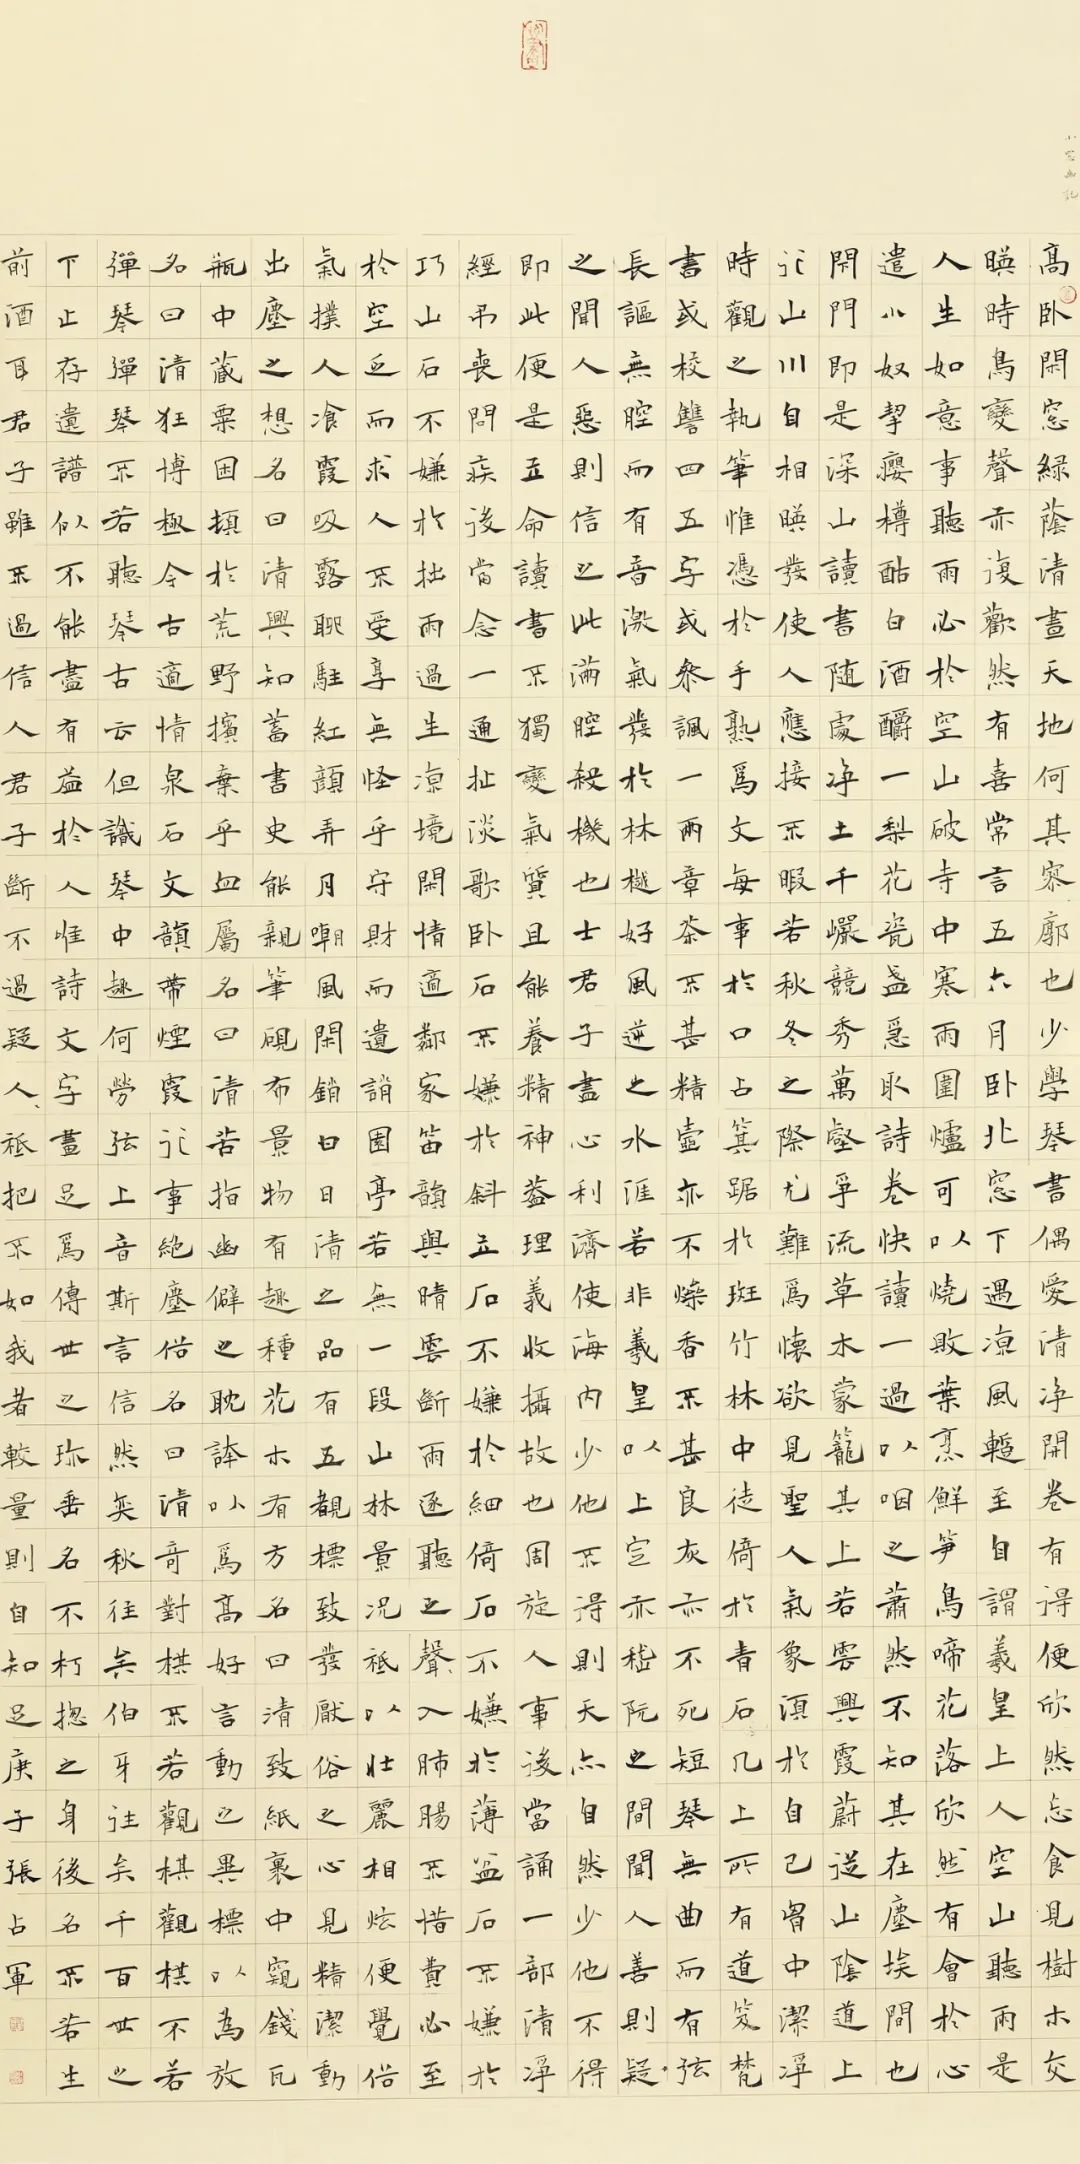 小窓幽記
高卧閑窓緑蔭清晝天地何其寥廓也少學琴書偶愛清净開卷有得便欣然忘食見樹木交
暎時鳥變聲亦復歡然有喜常言五六月卧北窓下遇凉風蹔至自謂羲皇上人空山聽雨是
人生如意事聽雨必於空山破寺中寒雨圍爐可以燒敗葉烹鮮笋鳥啼花落欣然有會於心
遣小奴挈癭樽酤白酒釂一梨花瓷盏急取詩卷快讀一過以咽之蕭然不知其在塵埃間也
閉門即是深山讀書随處净土千巖競秀萬壑爭流草木蒙籠其上若雲興霞蔚從山陰道上
行山川自相暎發使人應接不暇若秋冬之際尤難爲懷欲見聖人氣象湏於自己胷中潔淨
時觀之執筆惟憑於手熟爲文每事於口占箕踞於斑竹林中徒倚於青石几上所有道笈梵
書或校讐四五字或參諷一兩章茶不甚精壺亦不燥香不甚良灰亦不死短琴無曲而有弦
長謳無腔而有音激氣發於林樾好風逆之水涯若非羲皇以上定亦嵇阮之間聞人善則疑
之聞人惡則信之此滿腔殺機也士君子盡心利濟使海内少他不得則天亦自然少他不得
即此便是立命讀書不獨變氣質且能養精神葢理義收攝故也周旋人事後當誦一部清淨
經吊喪問疾後當念一通扯淡歌卧石不嫌於斜立石不嫌於細倚石不嫌於薄盆石不嫌於
巧山石不嫌於拙雨過生凉境閑情適鄰家笛韻與晴雲斷雨逐聽之聲入肺腸不惜費必至
於空乏而求人不受享無怪乎守財而遺誚園亭若無一段山林景况祇以壯麗相炫便覺俗
氣撲人飡霞吸露聊駐紅顔弄月嘲風閑銷白日清之品有五覩標致發厭俗之心見精潔動
出塵之想名曰清興知蓄書史能親筆硯布景物有趣種花木有方名曰清致紙裹中窺錢瓦
瓶中藏粟困頓於荒野擯棄乎血屬名曰清苦指幽僻之耽誇以爲高好言動之異標以為放
名曰清狂博極今古適情泉石文韻帶煙霞行事絶塵俗名曰清奇對棋不若觀棋觀棋不若
彈琴彈琴不若聽琴古云但識琴中趣何勞弦上音斯言信然奕秋往矣伯牙往矣千百世之
下止存遺譜似不能盡有益於人惟詩文字畫足爲傳世之珎垂名不朽揔之身後名不若生
前酒耳君子雖不過信人君子斷不過疑人祇把不如我者較量則自知足庚子張占軍